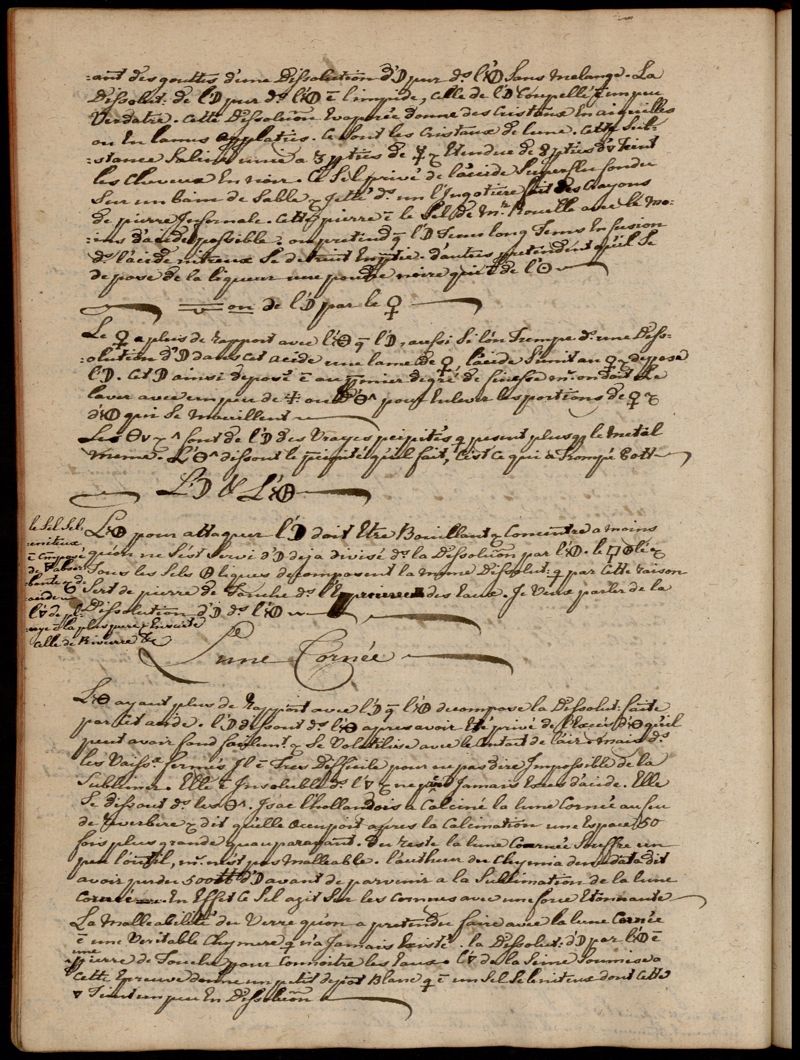 :ant des gouttes d'une Dissolution d'☽ pur ds l'🜕 Sans melange. La
Dissolut: de l'☽ pur ds l'🜕 ē limpide, celle de l'☽ Coupellé ē un peu
Verdatre. Cette Dissolution Evaporée donne des Cristaux En aiguilles
ou En lames applaties. Ce sont les Cristaux de lune. Cette Sub-
:stance Saline unie a 3 pties de ☿ & Etendue de 8 pties d'▽ Teint
les Cheveux En noir. Ce Sel privé de l'acide Superflu fondu
Sur un bain de Sable & Jetté ds un l'Ingotiere fait des Crayons
de pierre Infernale. Cette pierre ē le Sel de Mr. Rouelle avec le mo-
ins d'acide possible. on pretend q l'☽ Tenu long Tems En fusion
ds l'acide nitreux Se detruit En ptie. d'autres pretendent qu'il Se
depose de la liqueur une poudre noire qui ē de l'☉
on de l'☽ par le ♀
Le ♀ a plus de rapport avec l'🜕 q l'☽, aussi Si l'on Trempe ds une Disso-
:olution d'☽ dans cet acide une lame de ♀, l'acide S'unit au ♀ & depose
l'☽. Cet ☽ ainsi deposé ē au premier degré de finesse mr. on doit le
laver avec un peu de ou d' pour Enlever les portions de ♀ &
d'🜕 qui Se mouillent
Les sont de l'☽ des Vrayes pcipités q pesent plus q le metal
meme. L' dissout le pcipité qu'il fait, C'est Ce qui a Trompé Pott
L'☽ & L'🜖
L'🜖 pour attaquer l'☽ doit Etre Bouillant & Concentré a moins
qu'on ne S'est Servi d'☽ deja divisé ds la Dissolution par l'🜕. le &
Tous les Sels liques decomposent la meme Dissolut: q par Cette raison
Sert de pierre de Touche ds l'Epreuve des Eaux. Je Veux parler de la
Dissolution d'☽ ds l'🜕
le Sel Sel:
:eniteux
ē Composé
de
l'▽ de pl:
:uye ē la plus pure & Ensuite
Celle de Riviere &c
Lune Cornée
L' ayant plus de rapport avec l'☽ q l'🜕 decompose la Dissolut: faite
par Cet acide. l'☽ dissout ds l' apres avoir Eté privé de l'Exces d' qu'il
peut avoir fond facilemt & Se Volatilise avec le Contact de l'air. Mais ds
les Vaissx fermés Il ē Tres Difficile pour ne pas dire Impossible de la
Sublimer. Elle ē Insoluble ds l'▽ & ne prend Jamais Exces d'acide. Elle
Se dissout ds les . Isac l'hollandois a Calciné la lune Cornée au feu
de Reverbere & dit qu'elle Occupoit apres la Calcination une Espace 50
fois plus grande qu'auparavant. Du reste la lune Cornée Souffre un
peu l'outil, mr. n'est pas malleable. l'autheur du Chymia denudata dit
avoir perdu 500 d'☽ avant de parvenir a la Sublimation de la lune
Cornée. En Effet Ce Sel agit Sur les Cornues avec une force Etonnante
La Malleabilité du Verre qu'on a pretendu faire avec la lune Cornée
ē une Veritable Chymere q n'a Jamais Existé. la Dissolut: d'☽ par l'🜕 ē
une pierre de Touche pour Connoitre les Eaux. L'▽ de la Seine Soumise a
Cette Epreuve donne un petit depot Blanc q ē un Sel Seleniteux dont Cette
▽ Tient un peu En Dissolution